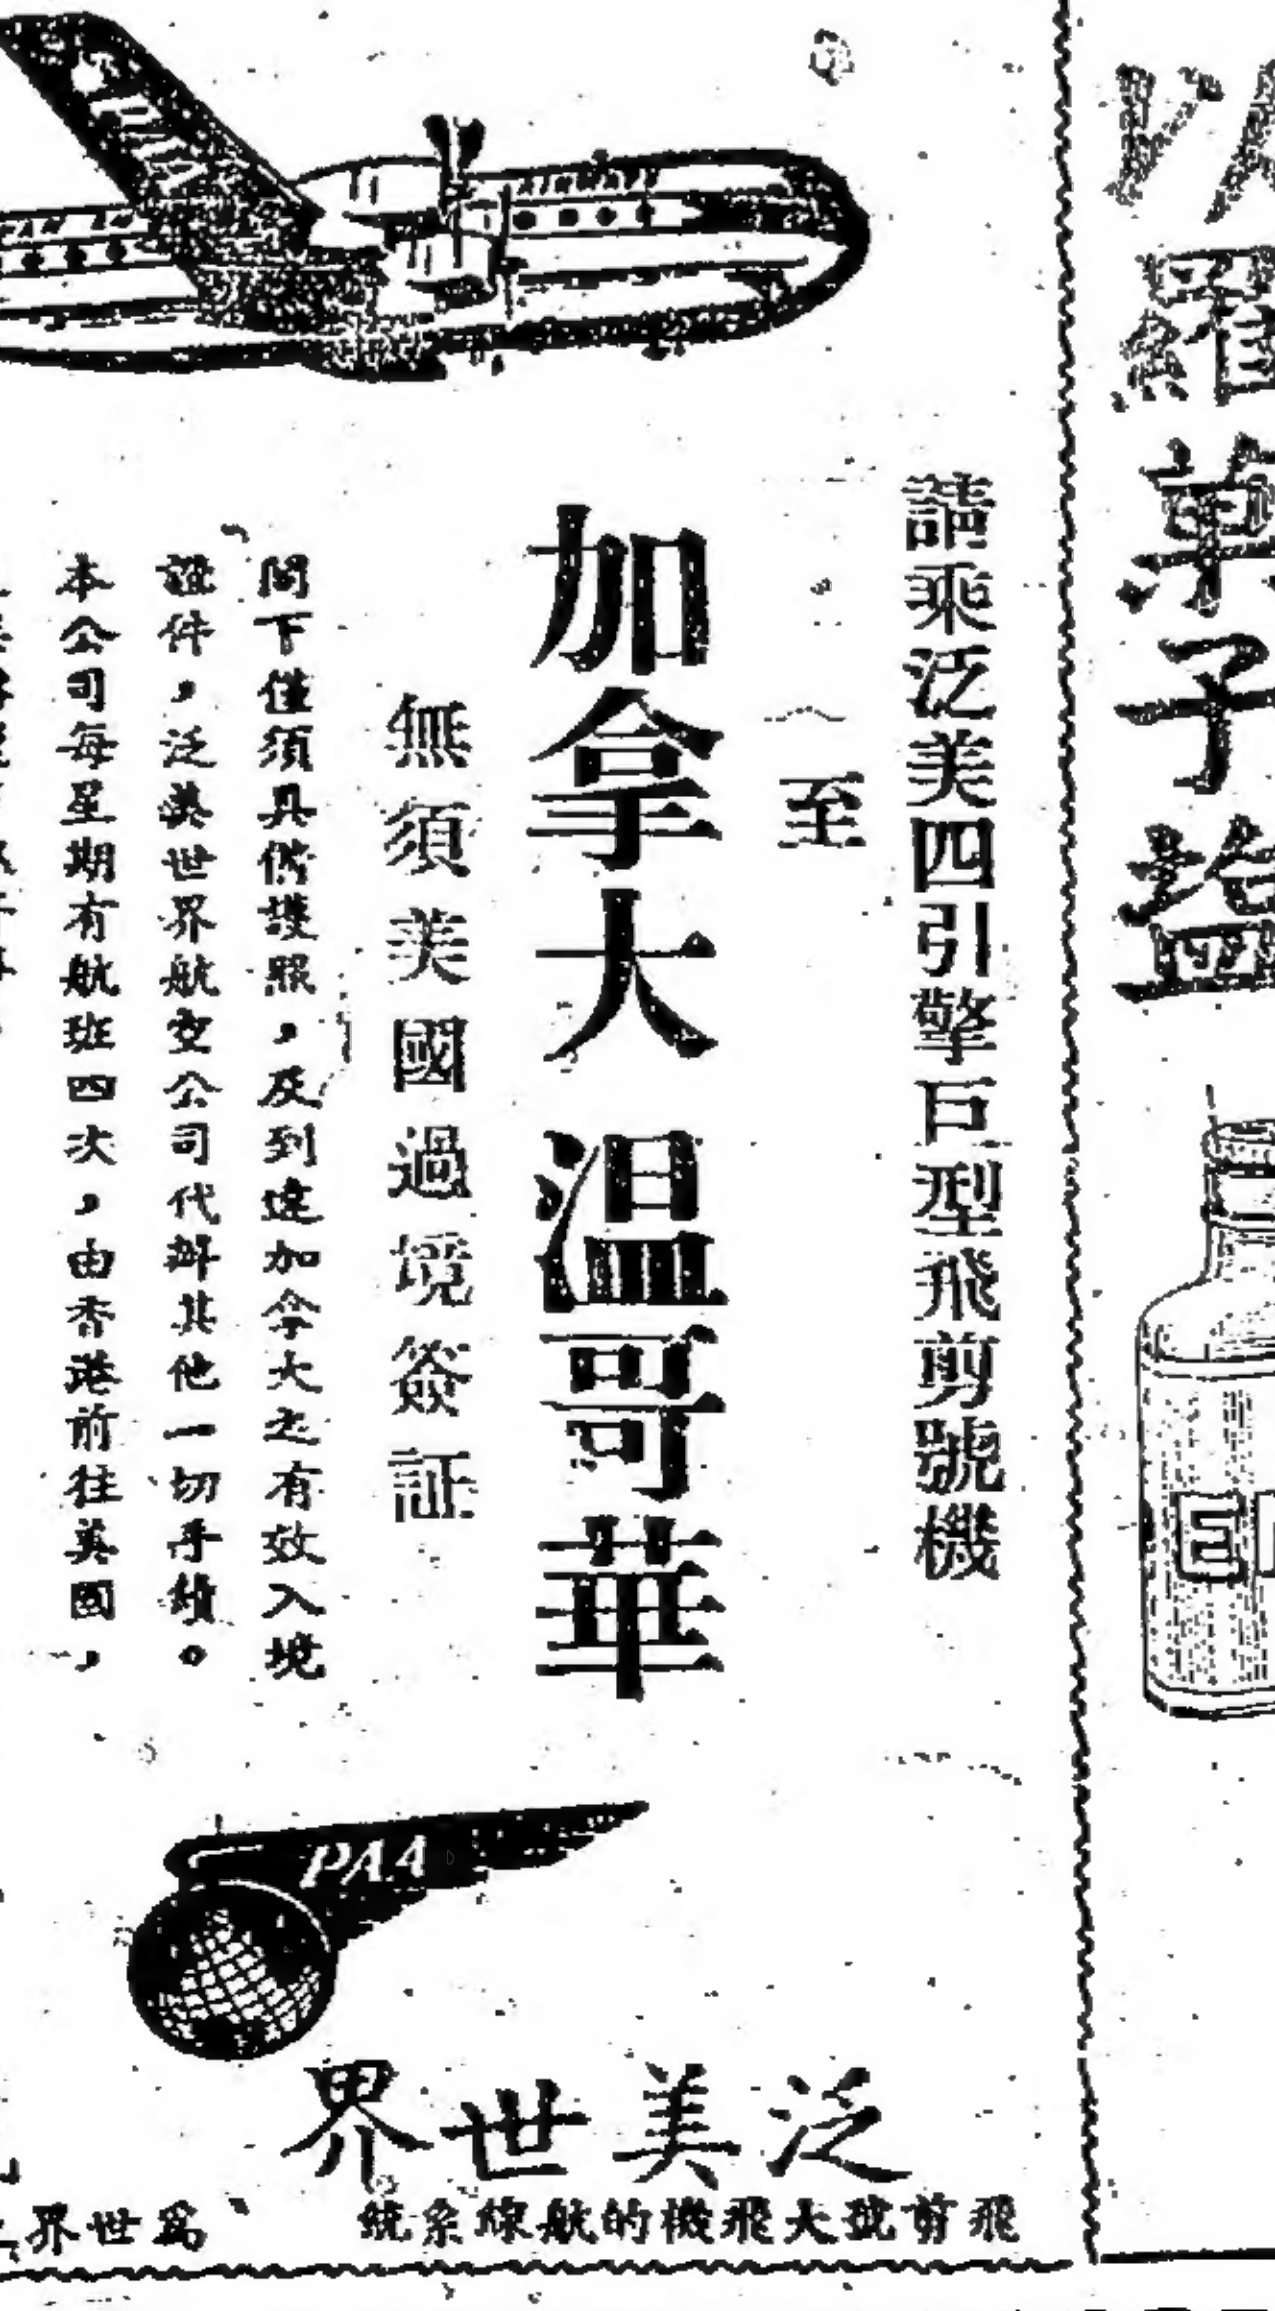 請乘泛美四引擎巨型飛剪號機
至
加拿大 温哥華
無須美國過境簽証
閣下僅須具備護照，及到達加拿大之有效入境
證件，泛美世界航空公司代辦其他一切手續。
本公司每星期有航班四次，由香港前往美國，
PAA
泛美世界
飛剪號大飛機的航線系統
為世界
PAA
羅
菓
子
鹽